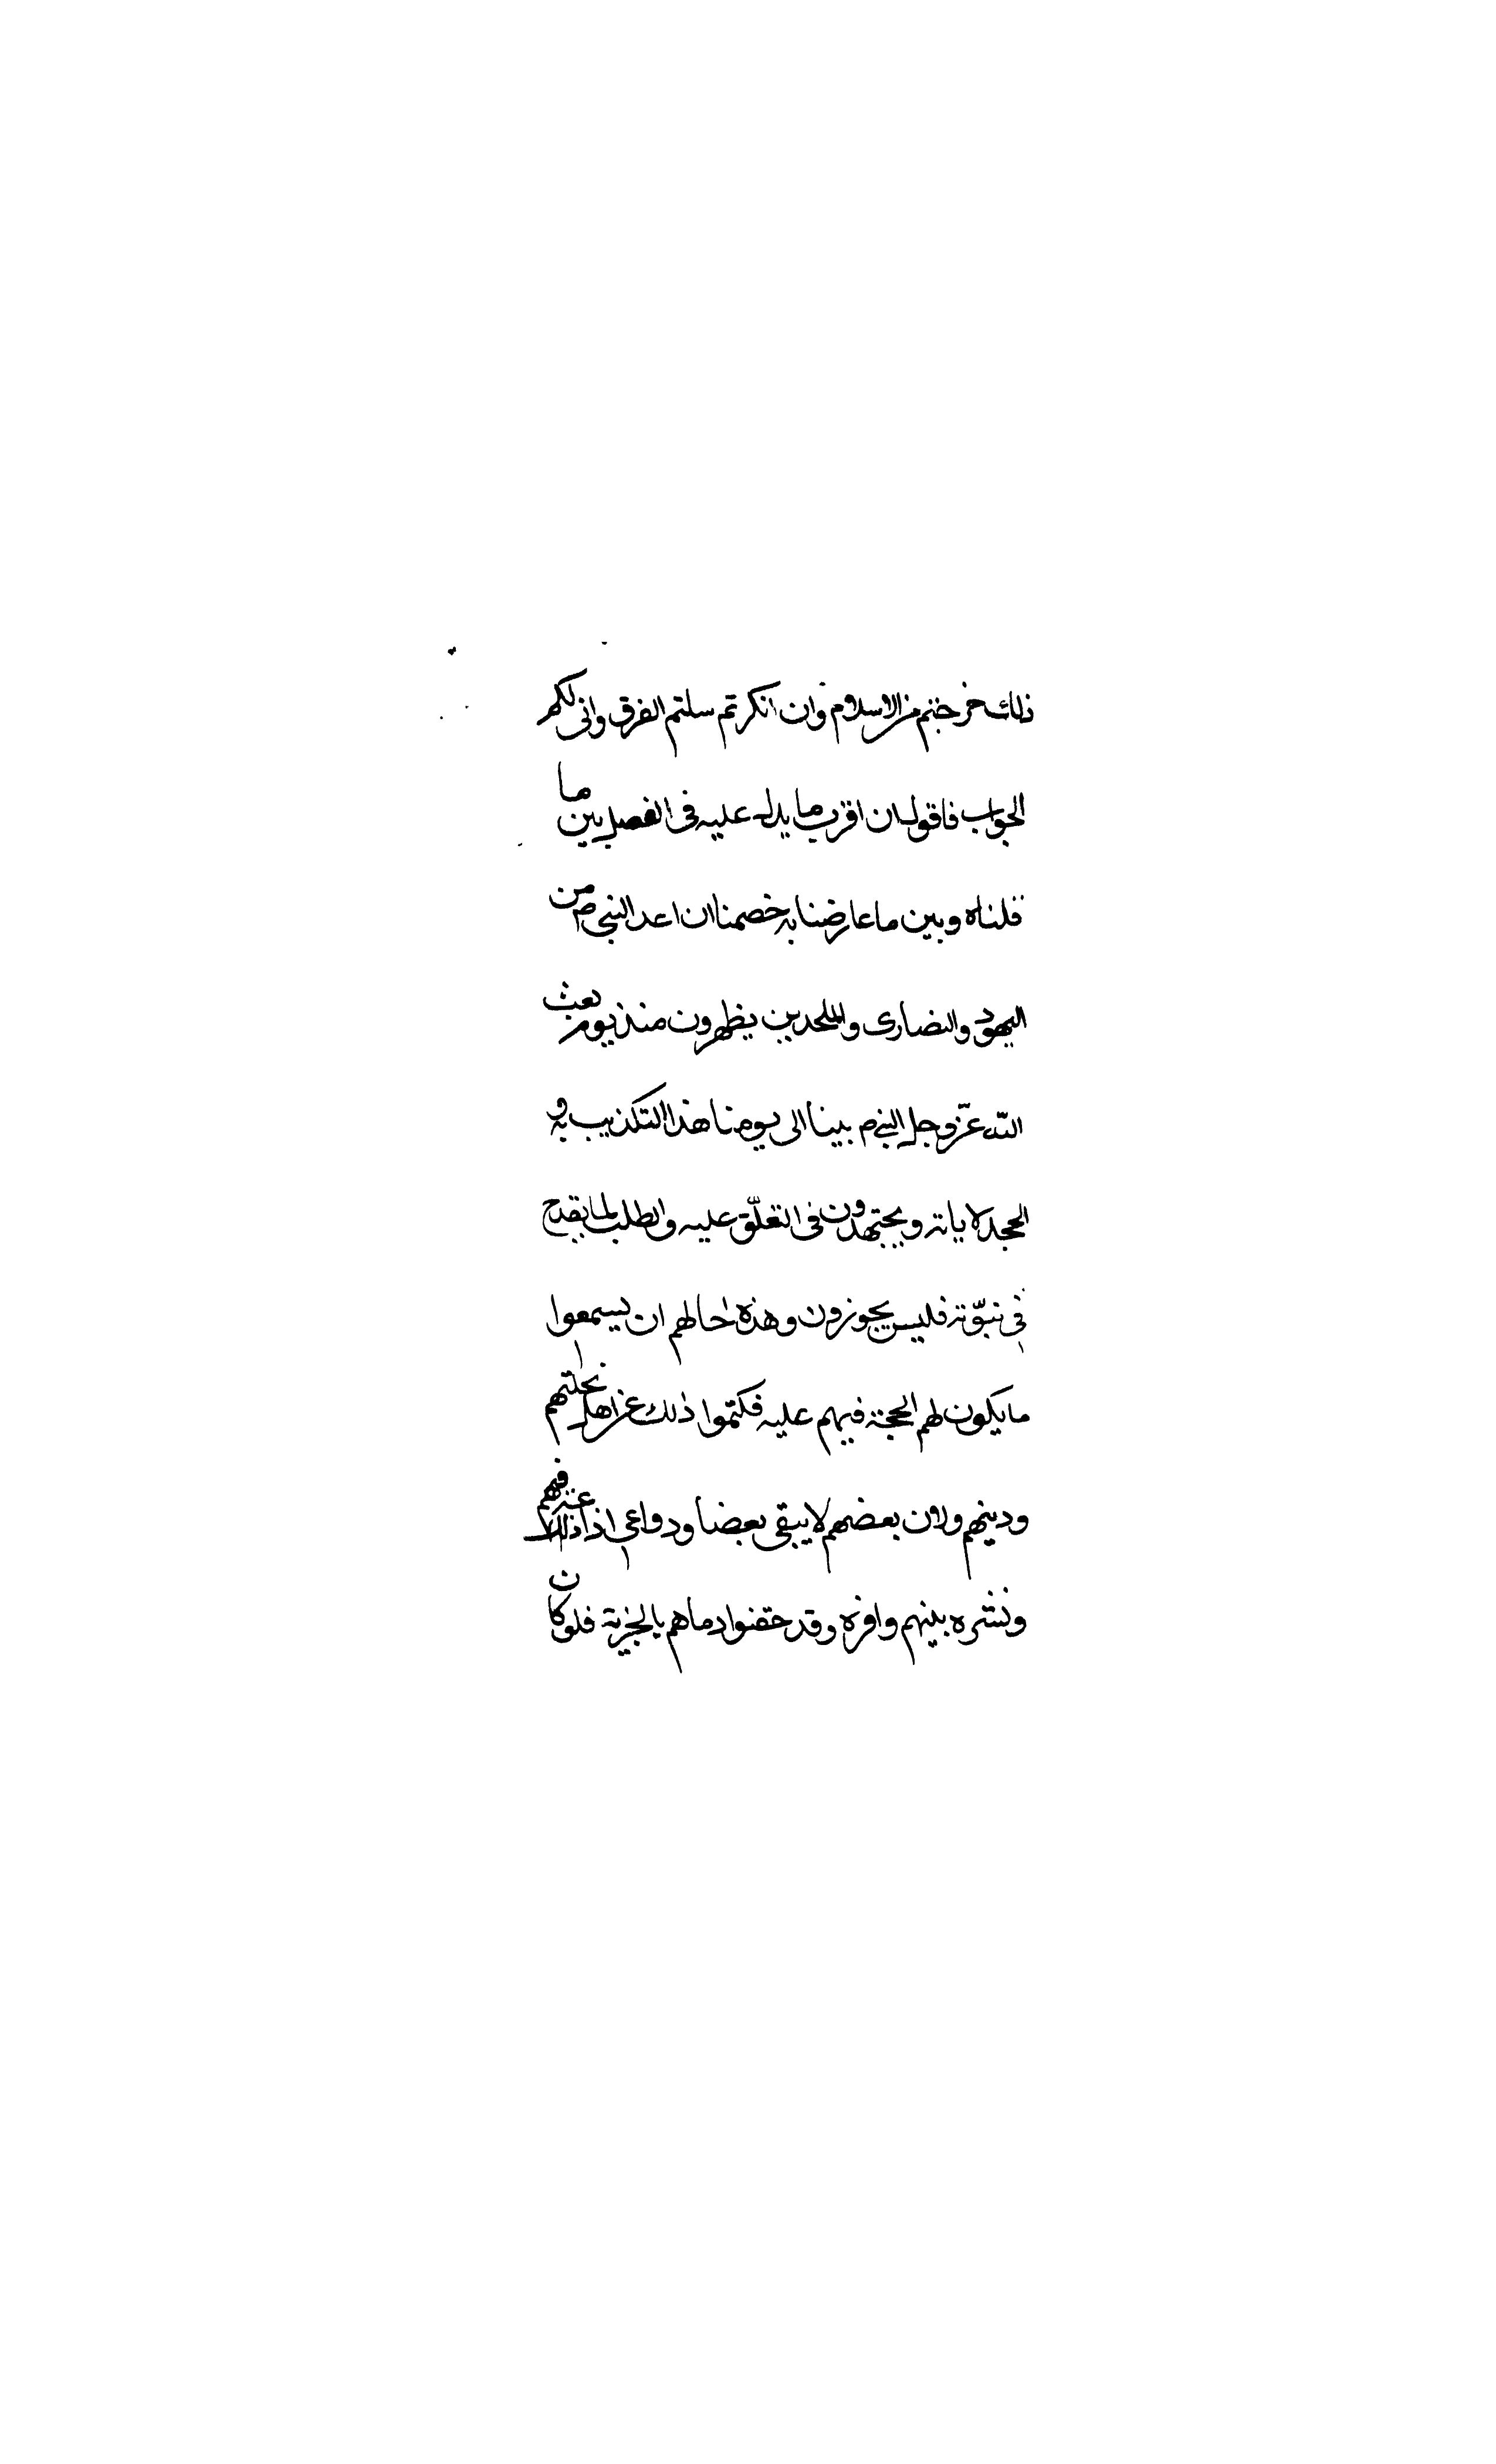 ذلك خرجتم من الاسلام وان انكرتم سلمتم الفرق وانى لكم
الجواب فاقول ان اقرب ما يدل عليه فى الفصل بين ما
قلناه وبين ما عارضنا به خصمنا ان اعداء النبى ص من
اليهود والنصارى والملحدين يظهرون منذ يوم بعث
الله عز وجل النبى م بينا الى يومنا هذا التكذيب به و
الجحد لاياته ويجتهدون فى التعلّق عليه والطلب لما يقدح
فى نبوّته فليس يجوزون وهذه احالهم ان يسمعوا
ما يكون لهم الحجة فيهم عليه فكتموا ذلك عن اهل نحلتهم
ودينهم ولان بعضهم لا يبقى بعضا ودواعى اذاعته فيهم
ونشره بينهم وافره وقد حقنوا دماهم بالجزية فلو كان